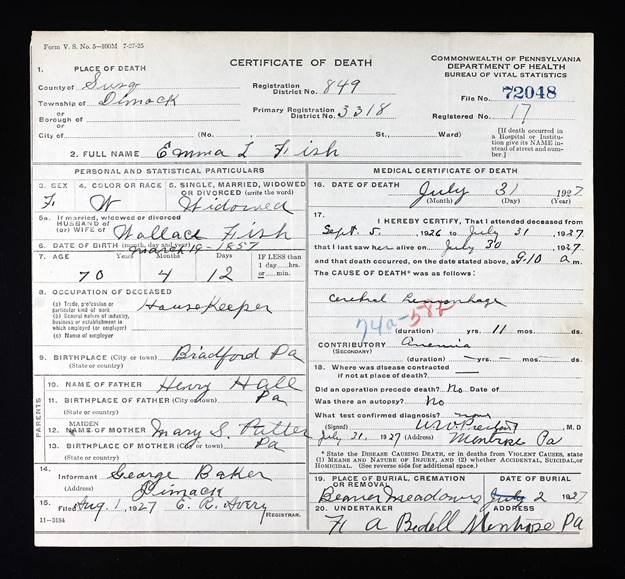 Form V. S. No. 5—100M 7-27-25
CERTIFICATE OF DEATH
COMMONWEALTH OF PENNSYLVANIA
DEPARTMENT OF HEALTH
BUREAU OF VITAL STATISTICS
1. PLACE OF DEATH
County of Susq
Township of Dimock
or
Borough of
or
City of
Registration District No. 849
Primary Registration District No. 3318
File No. 72048
Registered No. 17
(No. , St., Ward)
[If death occurred in a Hospital or Institution give its NAME instead of street and number.]
2. FULL NAME Emma L Fish
PERSONAL AND STATISTICAL PARTICULARS
3. SEX F.
4. COLOR OR RACE W
5. SINGLE, MARRIED, WIDOWED OR DIVORCED (write the word) Widowed
5a. If married, widowed or divorced
HUSBAND of
(or) WIFE of Wallace Fish
6. DATE OF BIRTH (month, day and year) March 19-1857
7. AGE Years Months Days
70 4 12
IF LESS than 1 day ... hrs. or ... min.
8. OCCUPATION OF DECEASED
(a) Trade, profession or particular kind of work Housekeeper
(b) General nature of industry, business or establishment in which employed (or employer)
(c) Name of employer
9. BIRTHPLACE (City or town) Bradford Pa
(State or country)
PARENTS
10. NAME OF FATHER Henry Hall
11. BIRTHPLACE OF FATHER (City or town) Pa
(State or country)
12. MAIDEN NAME OF MOTHER Mary S.
13. BIRTHPLACE OF MOTHER (City or town) Pa
(State or country)
14. Informant George Baker
(Address) Dimock
15. Filed Aug 1, 1927 E. R. Avery
REGISTRAR.
11-3184
MEDICAL CERTIFICATE OF DEATH
16. DATE OF DEATH July 31 1927
(Month) (Day) (Year)
17. I HEREBY CERTIFY, That I attended deceased from
Sept. 5, 1926 to July 31 1927
that I last saw her alive on July 30 1927
and that death occurred, on the date stated above, at 9.10 a m.
The CAUSE OF DEATH* was as follows:
Cerebral hemorrhage
74a-58b
(duration) yrs. 11 mos. ds.
CONTRIBUTORY anemia
(SECONDARY)
(duration) — yrs. — mos. — ds.
18. Where was disease contracted
if not at place of death? —
Did an operation precede death? No Date of
Was there an autopsy? No
What test confirmed diagnosis? none
(Signed) , M. D
July 31, 1927 (Address) Montrose Pa
* State the DISEASE CAUSING DEATH, or in deaths from VIOLENT CAUSES, state (1) MEANS AND NATURE OF INJURY, and (2) whether ACCIDENTAL, SUICIDAL, or HOMICIDAL. (See reverse side for additional space.)
19. PLACE OF BURIAL, CREMATION OR REMOVAL
Beaver Meadows
DATE OF BURIAL
July 2 1927
20. UNDERTAKER
ADDRESS
F A Bedell Montrose Pa